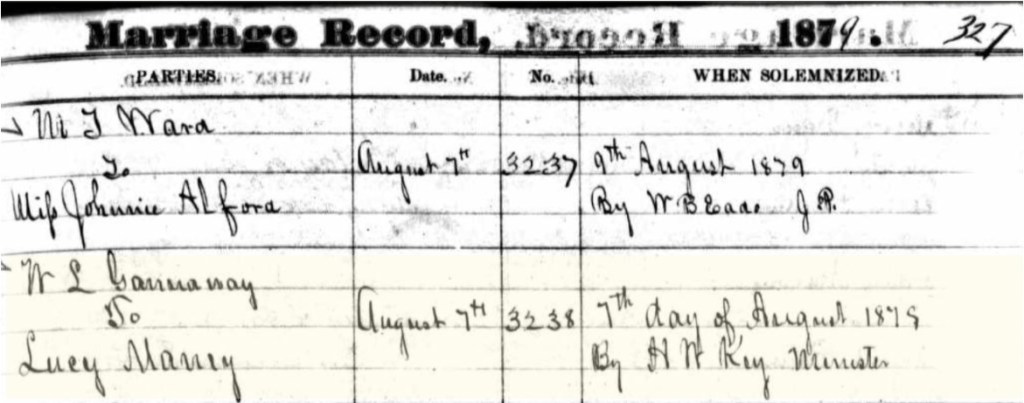 Marriage Record, 1879. 327
PARTIES. Date. No. WHEN SOLEMNIZED.
M T Ward
To August 7th 3237 9th August 1879
Miss Johnnie Alford By W B Eads J P.
W L Gannaway
To August 7th 3238 7th day of August 1879
Lucy Maney By H W Key Minister